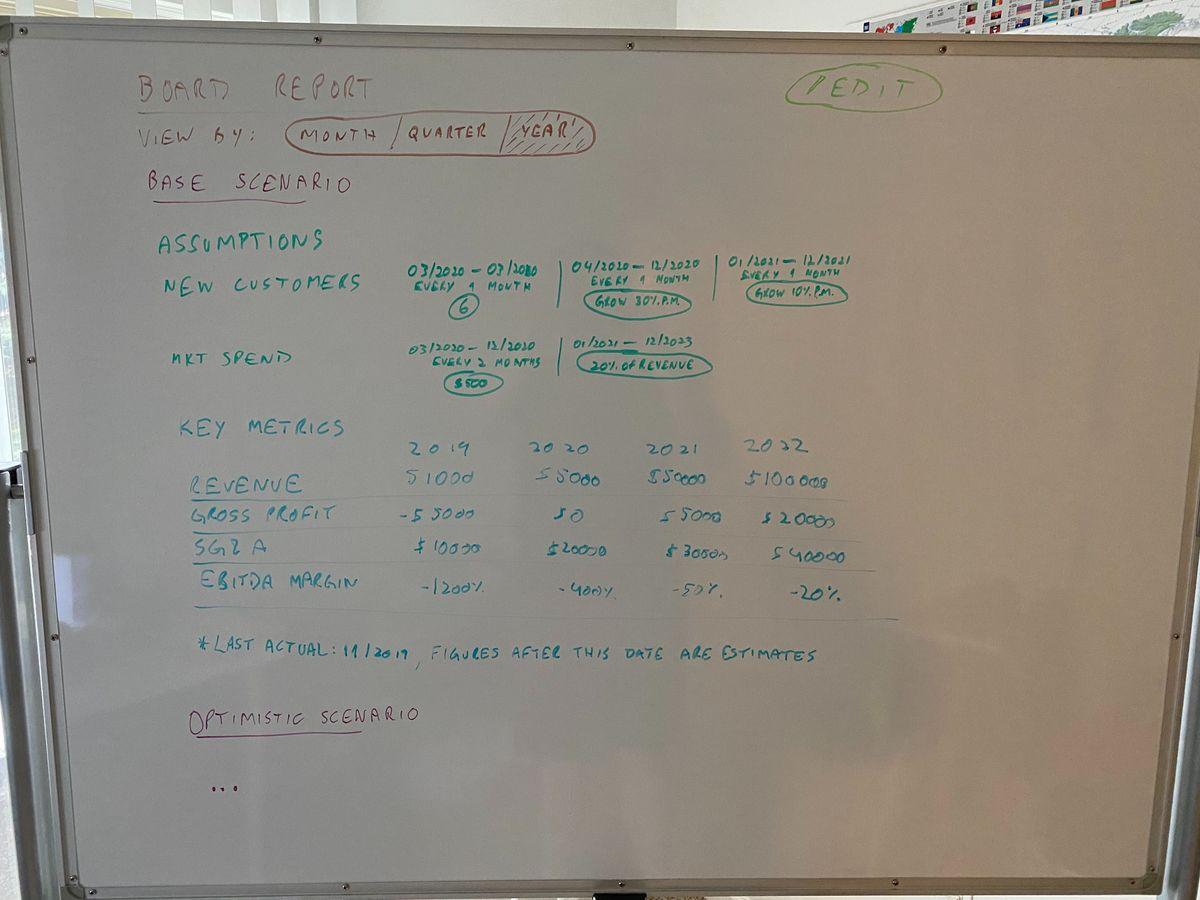 BOARD REPORT
EDIT
VIEW BY: MONTH / QUARTER / YEAR
BASE SCENARIO
ASSUMPTIONS
NEW CUSTOMERS
03/2020 - 03/2020
EVERY 1 MONTH
6
04/2020 - 12/2020
EVERY 1 MONTH
GROW 30% P.M.
01/2021 - 12/2021
EVERY 1 MONTH
GROW 10% P.M.
MKT SPEND
03/2020 - 12/2020
EVERY 2 MONTHS
$500
01/2021 - 12/2023
20% OF REVENUE
KEY METRICS
2019 2020 2021 2022
REVENUE $1000 $5000 $50000 $100000
GROSS PROFIT -$5000 $0 $5000 $20000
SG&A $10000 $20000 $30000 $40000
EBITDA MARGIN -1200% -400% -50% -20%
* LAST ACTUAL: 11/2019, FIGURES AFTER THIS DATE ARE ESTIMATES
OPTIMISTIC SCENARIO
...